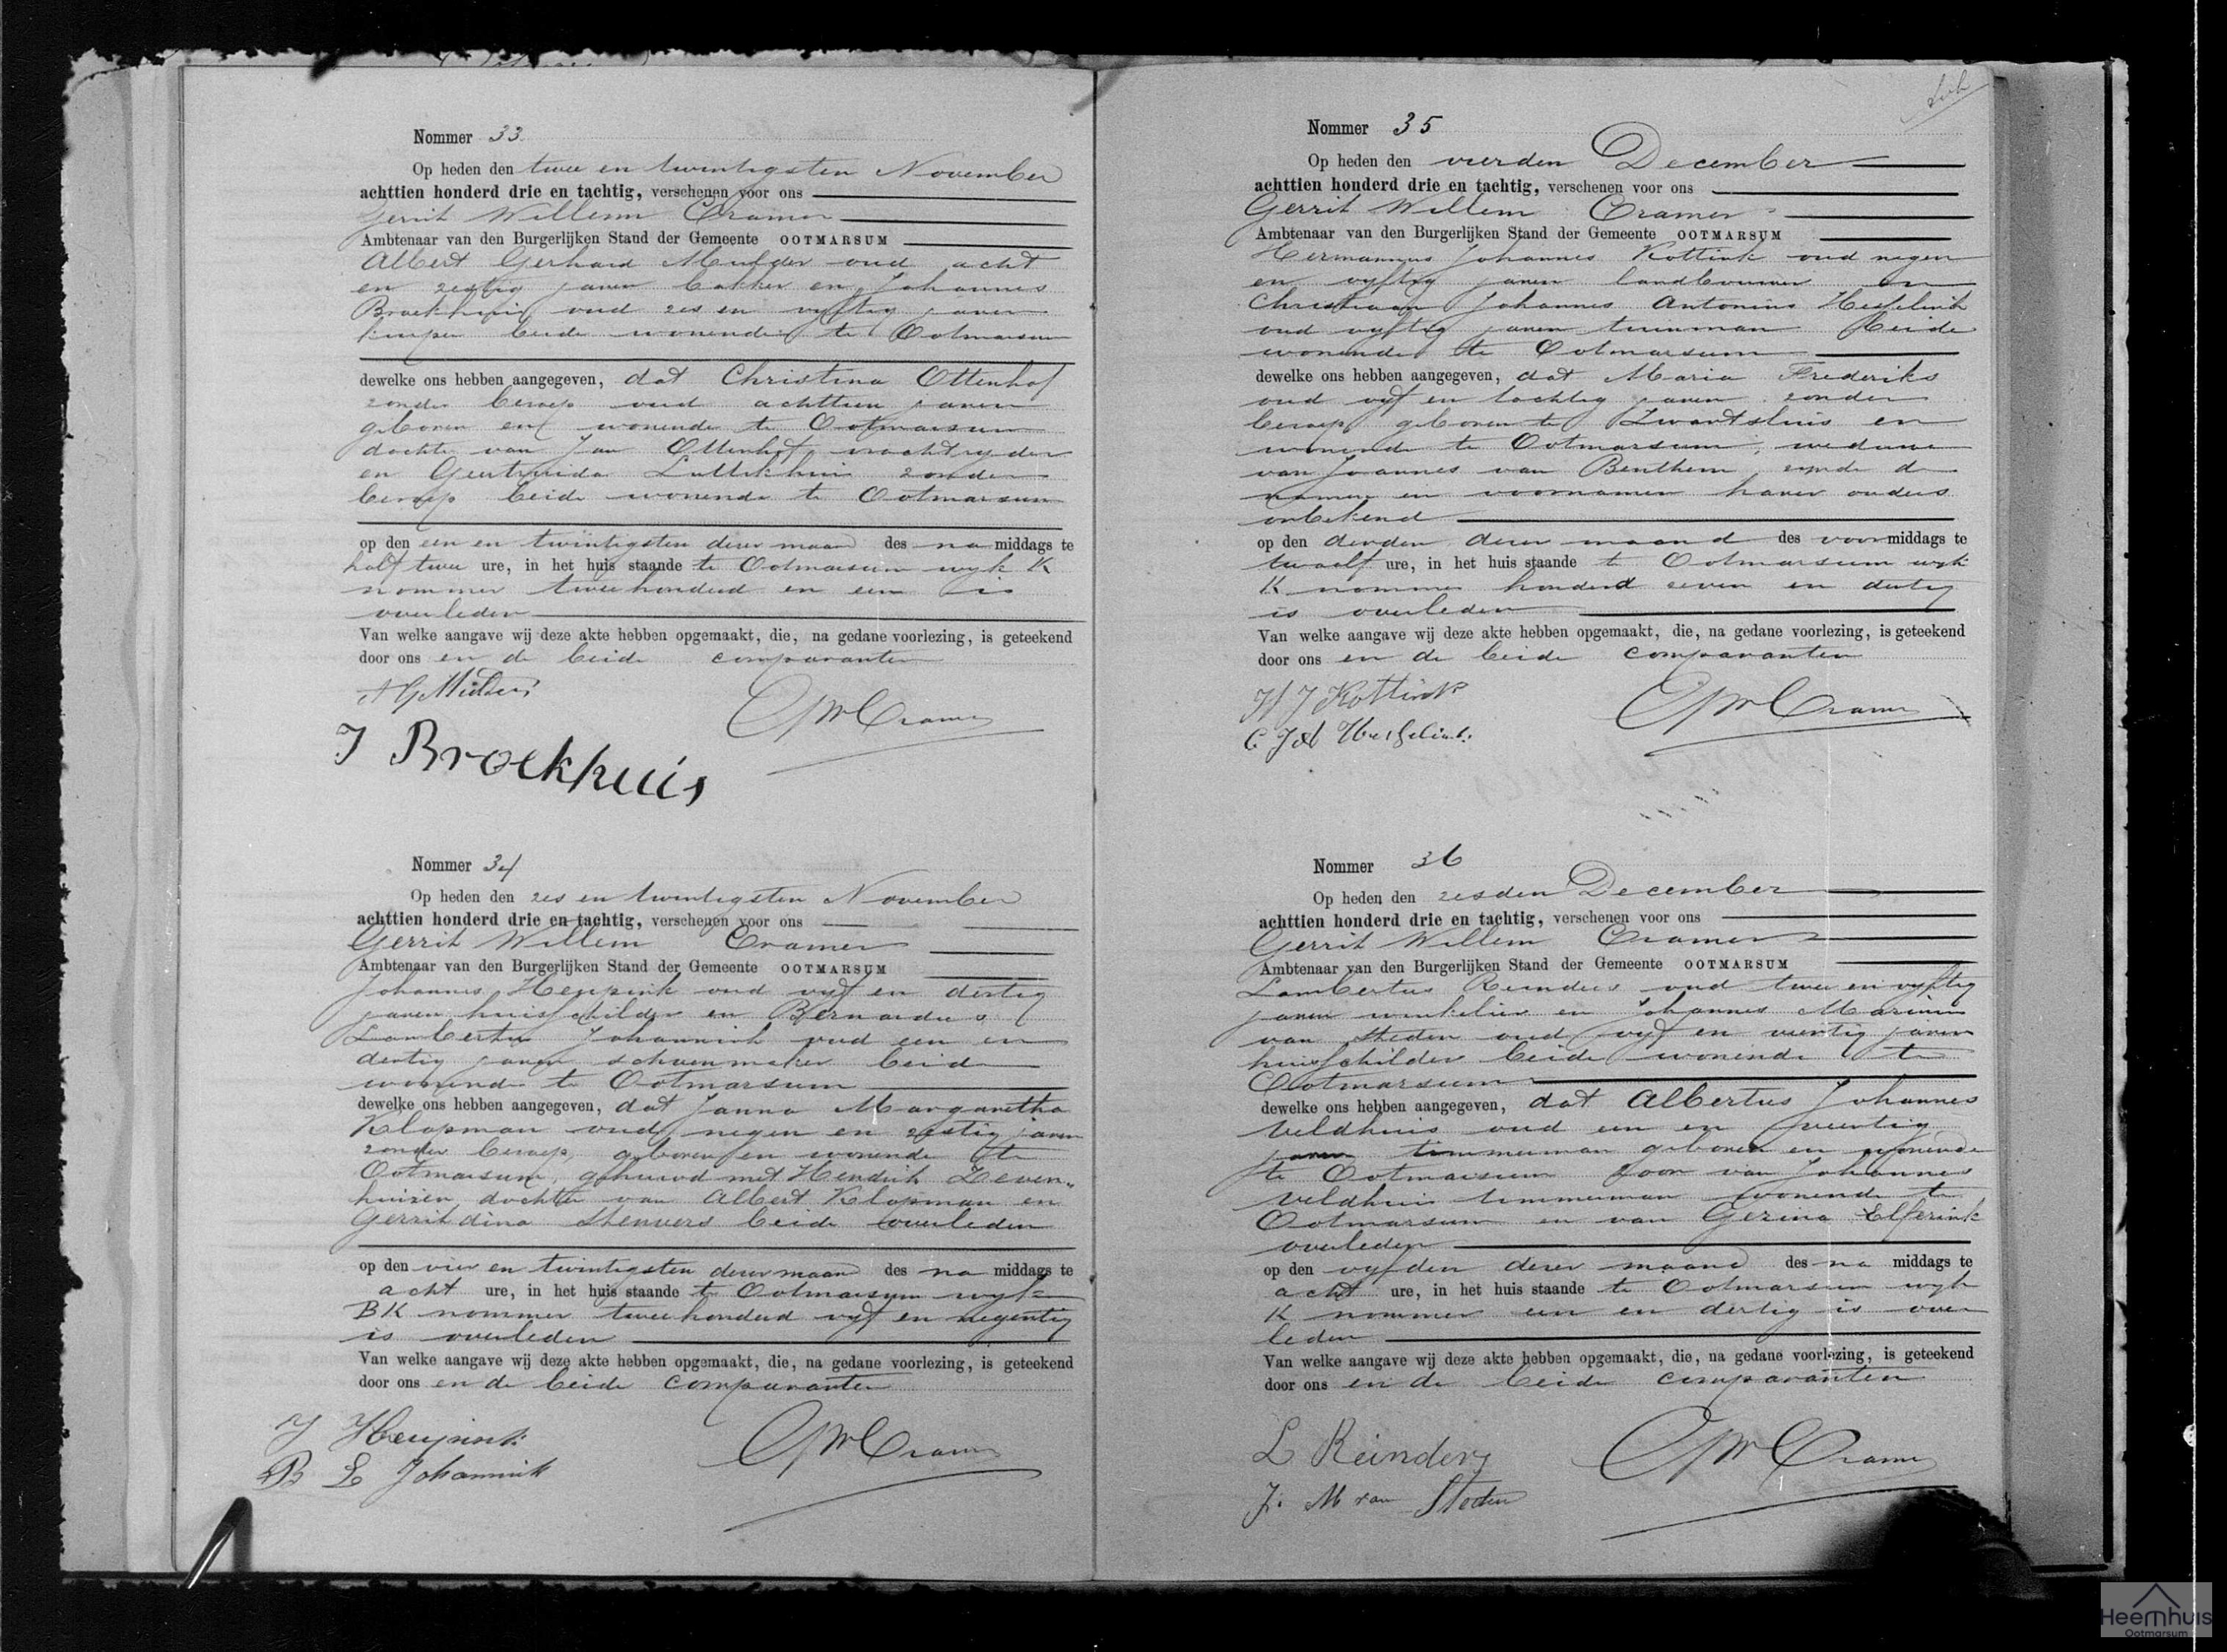 Nommer 33
Op heden den twee en twintigsten November
achttien honderd drie en tachtig, verschenen voor ons
Gerrit Willem Cramer
Ambtenaar van den Burgerlijken Stand der Gemeente OOTMARSUM
Albert Gerhard Mulder oud acht
en zestig jaren bakker en Johannes
Broekhuis oud zes en vyftig jaren
kuiper beide wonende te Ootmarsum
dewelke ons hebben aangegeven, dat Christina Ottenhof
zonder beroep oud achttien jaren
geboren en wonende te Ootmarsum
dochter van Jan Ottenhof vrachtryder
en Geertruida Luttikhuis zonder
beroep beide wonende te Ootmarsum
op den een en twintigsten dezer maand des na middags te
half twee ure, in het huis staande te Ootmarsum wyk K
nommer tweehonderd en een is
overleden
Van welke aangave wij deze akte hebben opgemaakt, die, na gedane voorlezing, is geteekend
door ons en de beide comparanten
A G Mulder
GWCramer
J Broekhuis
Nommer 34
Op heden den zes en twintigsten November
achttien honderd drie en tachtig, verschenen voor ons
Gerrit Willem Cramer
Ambtenaar van den Burgerlijken Stand der Gemeente OOTMARSUM
Johannes Heupink oud vyf en dertig
jaren huisschilder en Bernardus
Lambertus Johannink oud een en
dertig jaren schoenmaker beide
wonende te Ootmarsum
dewelke ons hebben aangegeven, dat Janna Margaretha
Klopman oud negen en zestig jaren
zonder beroep, geboren en wonende te
Ootmarsum, gehuwd met Hendrik Zeven„
huizen dochter van Albert Klopman en
Gerritdina Stenvers beide overleden
op den vier en twintigsten dezer maand des na middags te
acht ure, in het huis staande te Ootmarsum wyk
BK nommer tweehonderd vyf en negentig
is overleden
Van welke aangave wij deze akte hebben opgemaakt, die, na gedane voorlezing, is geteekend
door ons en de beide comparanten
J Heupink
GWCramer
B L Johannink
Nommer 35
Op heden den vierden December
achttien honderd drie en tachtig, verschenen voor ons
Gerrit Willem Cramer
Ambtenaar van den Burgerlijken Stand der Gemeente OOTMARSUM
Hermannus Johannes Kottink oud negen
en vyftig jaren landbouwer en
Christiaan Johannes Antonius Hesselink
oud vyftig jaren tuinman beide
wonende te Ootmarsum
dewelke ons hebben aangegeven, dat Maria Frederiks
oud vyf en tachtig jaren zonder
beroep geboren te Zwartsluis en
wonende te Ootmarsum, weduwe
van Joannes van Benthem, zynde de
namen en voornamen harer ouders
onbekend
op den derden dezer maand des voor middags te
twaalf ure, in het huis staande te Ootmarsum wyk
K nommer honderd zeven en dertig
is overleden
Van welke aangave wij deze akte hebben opgemaakt, die, na gedane voorlezing, is geteekend
door ons en de beide comparanten
H J Kottink
GWCramer
C J A Hesselink
Nommer 36
Op heden den zesden December
achttien honderd drie en tachtig, verschenen voor ons
Gerrit Willem Cramer
Ambtenaar van den Burgerlijken Stand der Gemeente OOTMARSUM
Lambertus Reinders oud twee en vyftig
jaren winkelier en Johannes Marinus
van Steden oud vyf en veertig jaren
huisschilder beide wonende te
Ootmarsum
dewelke ons hebben aangegeven, dat Albertus Johannes
Veldhuis oud een en veertig
jaren timmerman geboren en wonende
te Ootmarsum zoon van Johannes
Veldhuis timmerman wonende te
Ootmarsum en van Gezina Elferink
overleden
op den vyfden dezer maand des na middags te
acht ure, in het huis staande te Ootmarsum wyk
K nommer een en dertig is over
leden
Van welke aangave wij deze akte hebben opgemaakt, die, na gedane voorlezing, is geteekend
door ons en de beide comparanten
L Reinders
GWCramer
J. M van Steden
Heemhuis
Ootmarsum